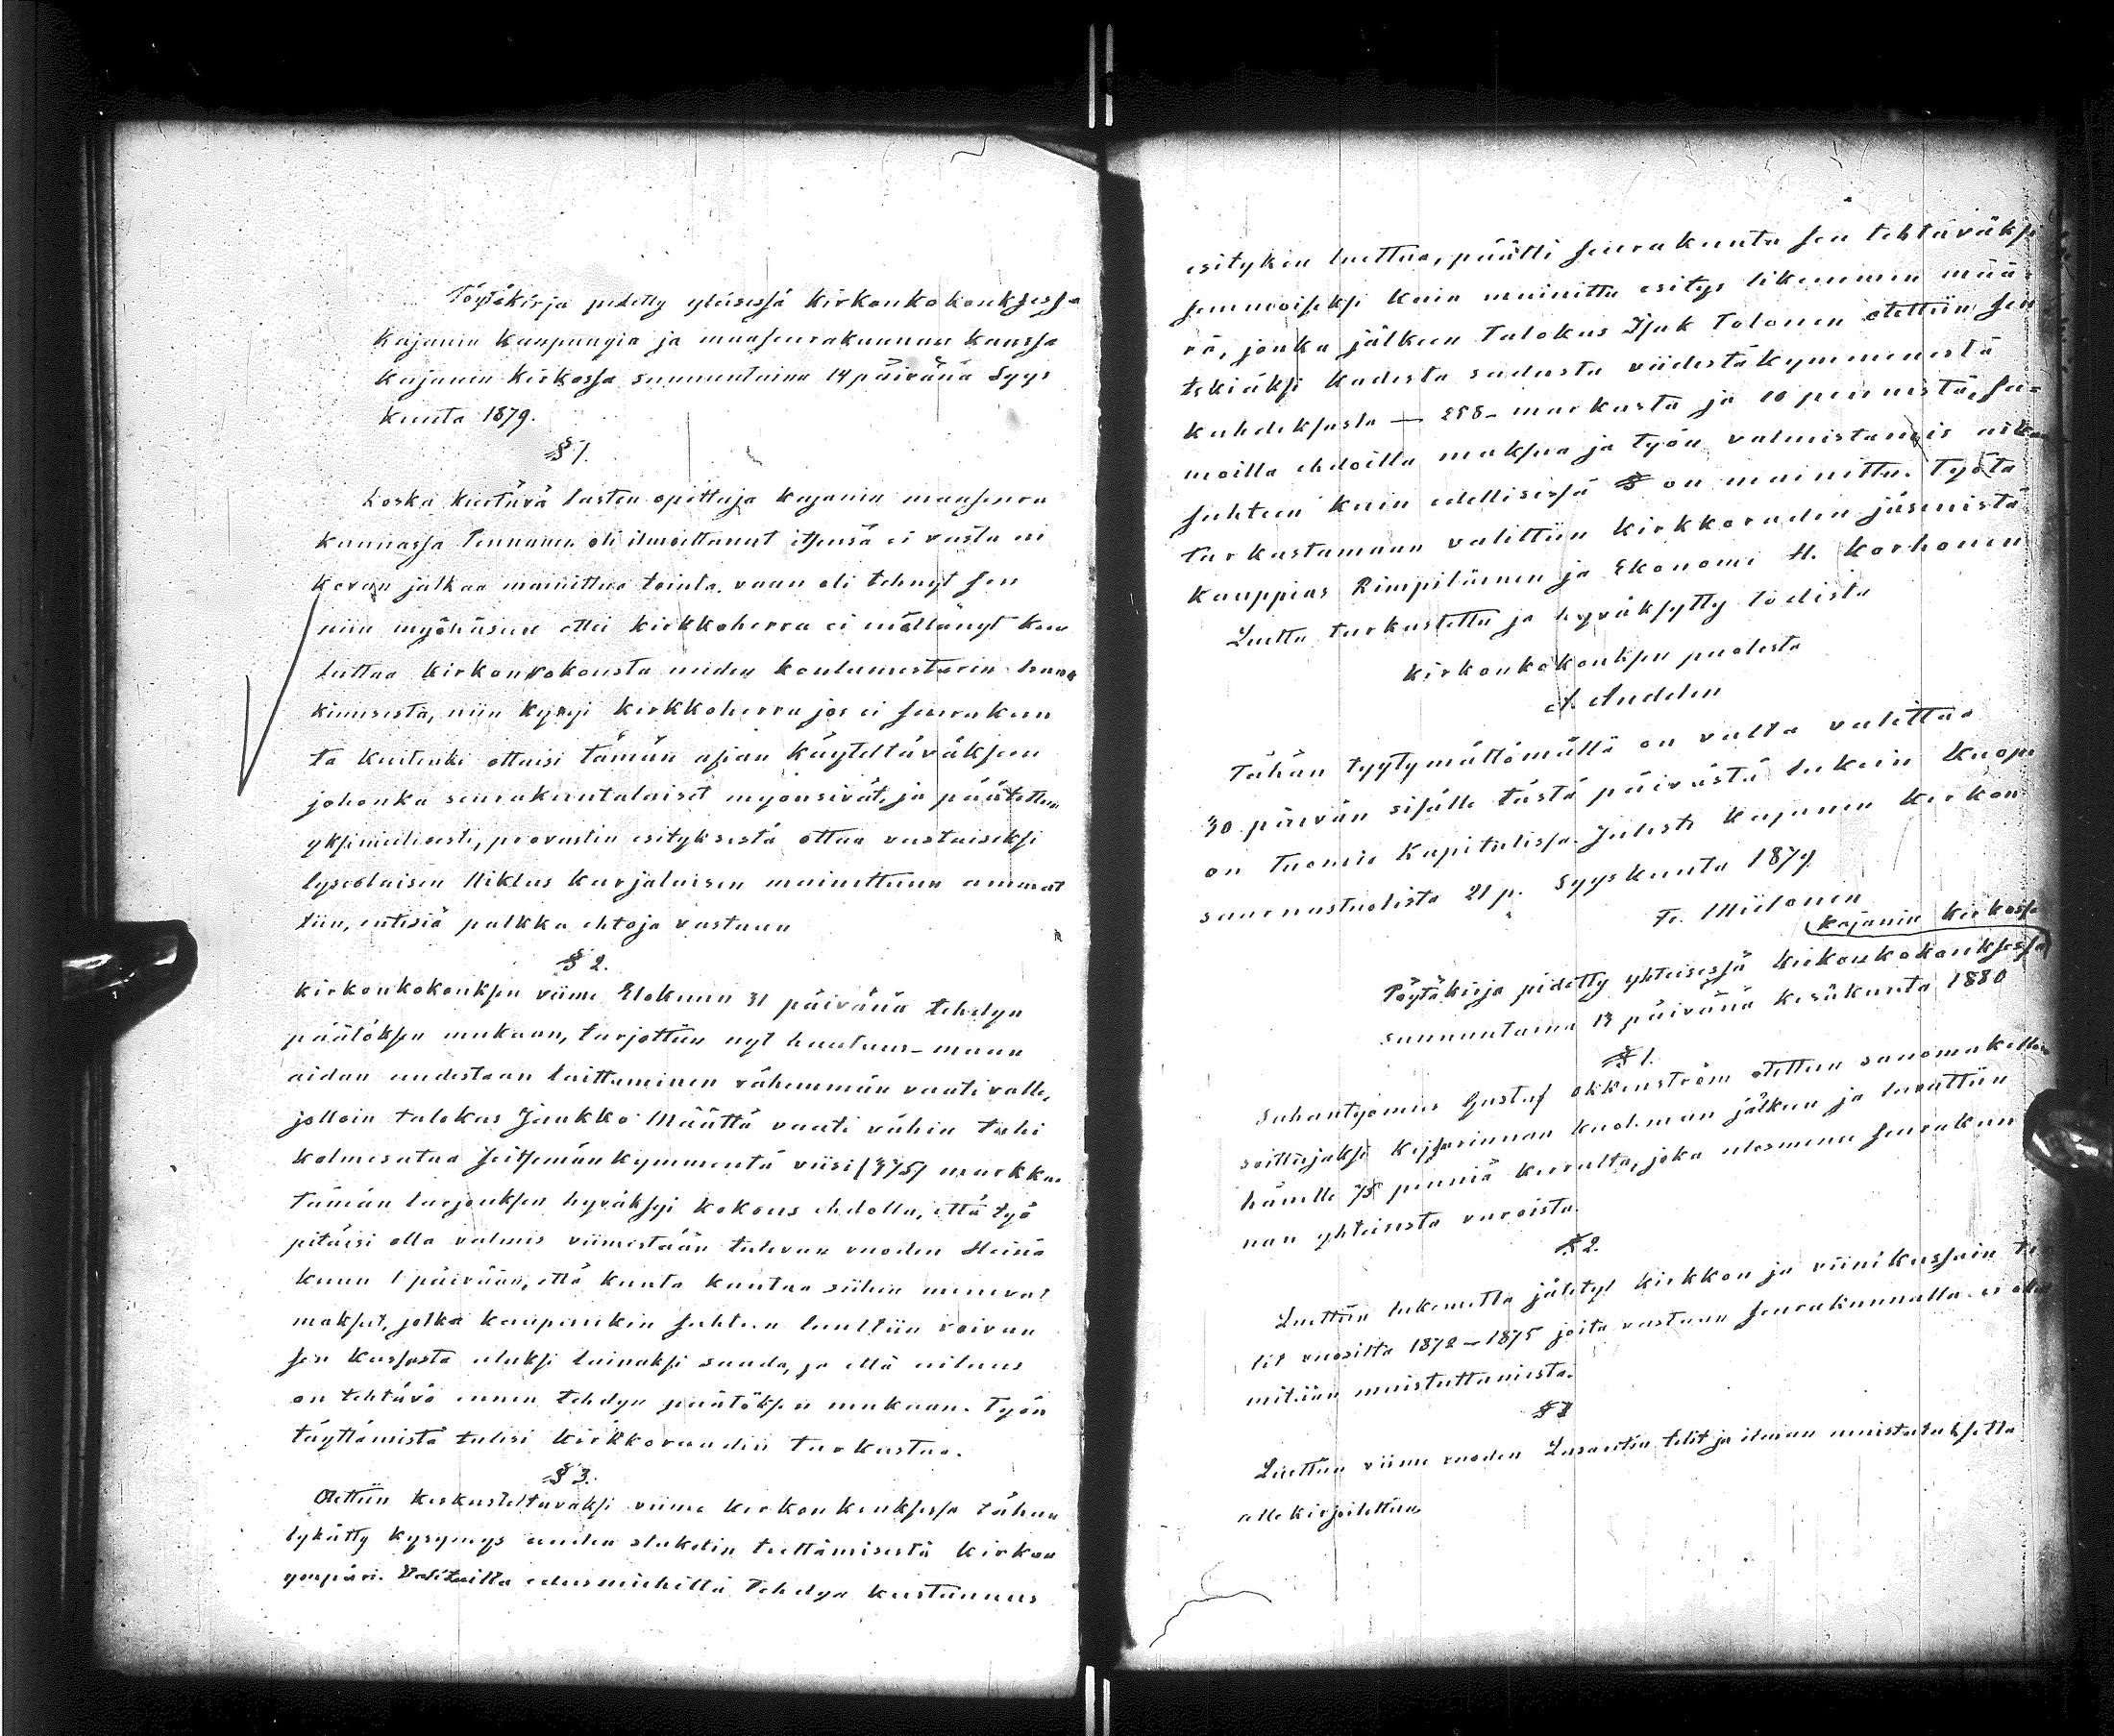 Pöytäkirja pidetty yleisessä Kirkonkokouksessa
Kajanin Kaupungin ja maaseurakunnan kanssa
Kajanin Kirkossa sunnuntaina 14 päivänä Syys
kuuta 1879.
§ 1.
Koska kiertävä lasten opettaja Kajanin maaseura
kunnassa Tennanen oli ilmoittanut itsensä ei vasta ni
kovan jalkaa mainittua tointa, vaan oli tehnyt sen
niin myöhäseen ettei kirkkoherra ei mältänyt kuu
luttaa kirkonkokousta uuden koulumestarin hank
kimisesta, niin kysyi kirkkoherra jos ei seurakun
ta kuitenki ottaisi tämän asian käyteltäväkseen
johonka seurakuntalaiset myönsivät, ja päätettiin
yksimielisesti, provastin esityksestä ottaa vastaiseksi
lyseolaisen Niklas Karjalaisen mainittuun ammat
tiin, entisiä palkka ehtoja vastaan
§ 2.
Kirkonkokouksen viime Elokuun 31 päivänä tehdyn
päätöksen mukaan, tarjottiin nyt hautaus-maan
aidan uudestaan laittaminen vähemmän vaativalle,
jolloin talokas Jaakko Määttä vaati vähin tahi
kolmesataa seitsemänkymmentä viisi (375) markkaa
tämän tarjouksen hyväksyi kokous ehdolla, että työ
pitäisi olla valmis viimeistään tulevan vuoden Heinä
kuun 1 päivään, että kunta kuntaa siihen menevat
maksut, jotka kaupunkin suhteen luultiin voivan
sen kassasta aluksi lainaksi saada, ja että aitaus
on tehtävä ennen tehdyn päätöksen mukaan. Työn
täyttämistä tulisi Kirkkoraadin tarkastaa.
§ 3.
Otettiin keskusteltavaksi viime kirkonkouksessa tähän
lykätty kysymys uuden staketin teettämisestä kirkon
ympäri. Valituilta edusmiehiltä tehdyn kustannus
esityksen luettua, päätti seurakunta sen tehtäväksi
semmoiseksi kuin mainittu esitys likemmin mää-
rä, jonka jälkeen talokas Isak Tolonen otettiin sen
tekiäksi kadesta sadasta viidestäkymmenestä
kahdeksasta — 258 - markasta ja 10 pennistä, sa-
moilla ehdoilla maksun ja työn valmistamis aikan
suhteen kuin edellisessä § on mainittu. Työtä
tarkastamaan valittiin Kirkkoraadin jäsenistä
Kauppias Rimpiläinen ja Ekonomi H. Korhonen
Luettu tarkastettu ja hyväksytty todista
Kirkonkokouksen puolesta
A. Andelin
Tähän tyytymättömällä on valta valittaa
30 päivän sisälle tästä päivästä lukein Kuopi
on Tuomio Kapitulissa. Julisti Kajanin Kirkon
saarnastuolista 21 p. Syyskuuta 1879
Fr. Miilonen
Kajanin Kirkossa
Pöytäkirja pidetty yhteisessä kirkonkokouksessa
sunnuntaina 13 päivänä Kesäkuuta 1880
§ 1.
Sahantyömies Gustaf Okkenström otettiin sanomakellon
soittajaksi Keisarinnan kuoleman jälkeen ja luvattiin
hänelle 75 penniä kerralta, joka ulosmenee seurakun
nan yhteisestä varoista.
§ 2.
Luettiin lukematta jätetyt kirkkon ja viinikassain ti
lit vuosilta 1872—1875 joita vastaan seurakunnalla ei ollut
mitään muistuttamista.
§ 3
Luettiin viime vuoden Lasaretin tilit ja ilman muistutuksetta
allekirjoitettiin